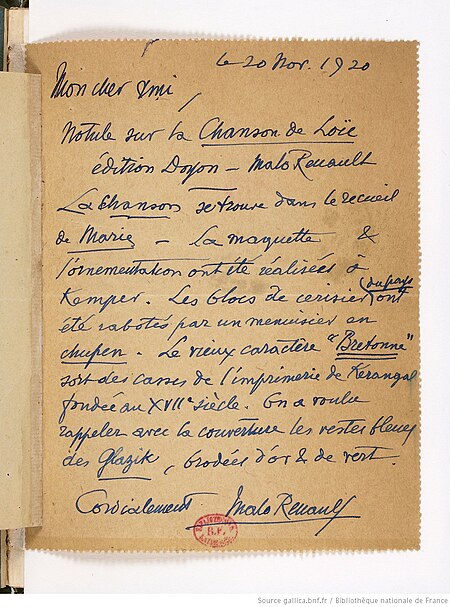 Le 20 Nov. 1920
Mon cher Ami,
Notule sur la Chanson de Loïc
édition Doyon – Malo Renault
La Chanson se trouve dans le recueil
de Marie – La maquette &
l'ornementation ont été réalisées à
Kemper. Les blocs de cerisier (du pays) ont
été rabotés par un menuisier en
chupen. Le vieux caractère "Bretonne"
sort des casses de l'imprimerie de Kérangal
fondée au XVIIe siècle. On a voulu
rappeler avec la couverture les vestes bleues
des Glazik, brodées d'or & de vert.
Cordialement Malo Renault
B.F.
Source gallica.bnf.fr / Bibliothèque nationale de France